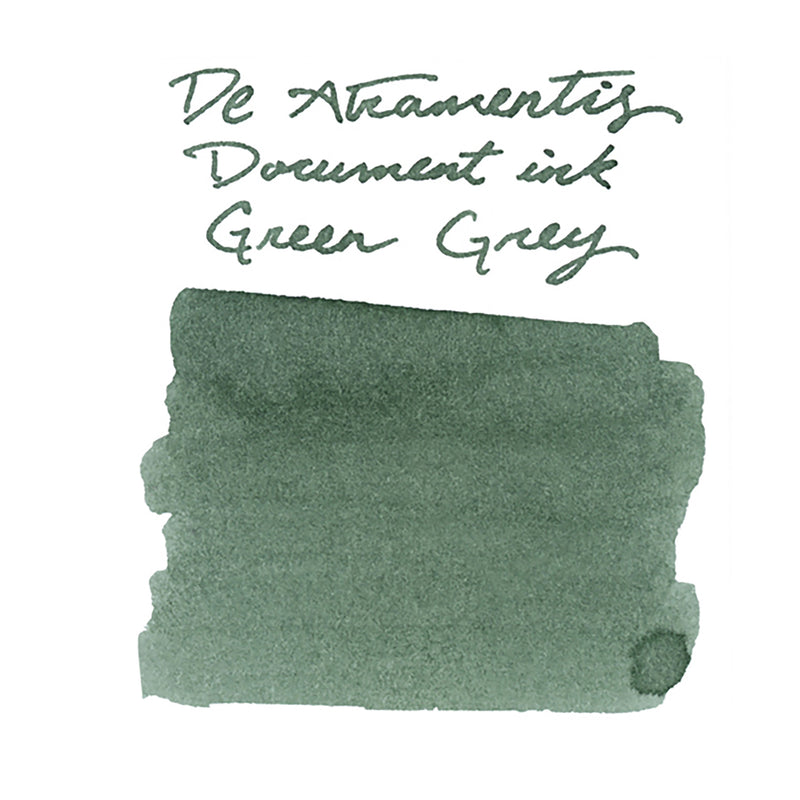 De Atramentis
Document ink
Green Grey